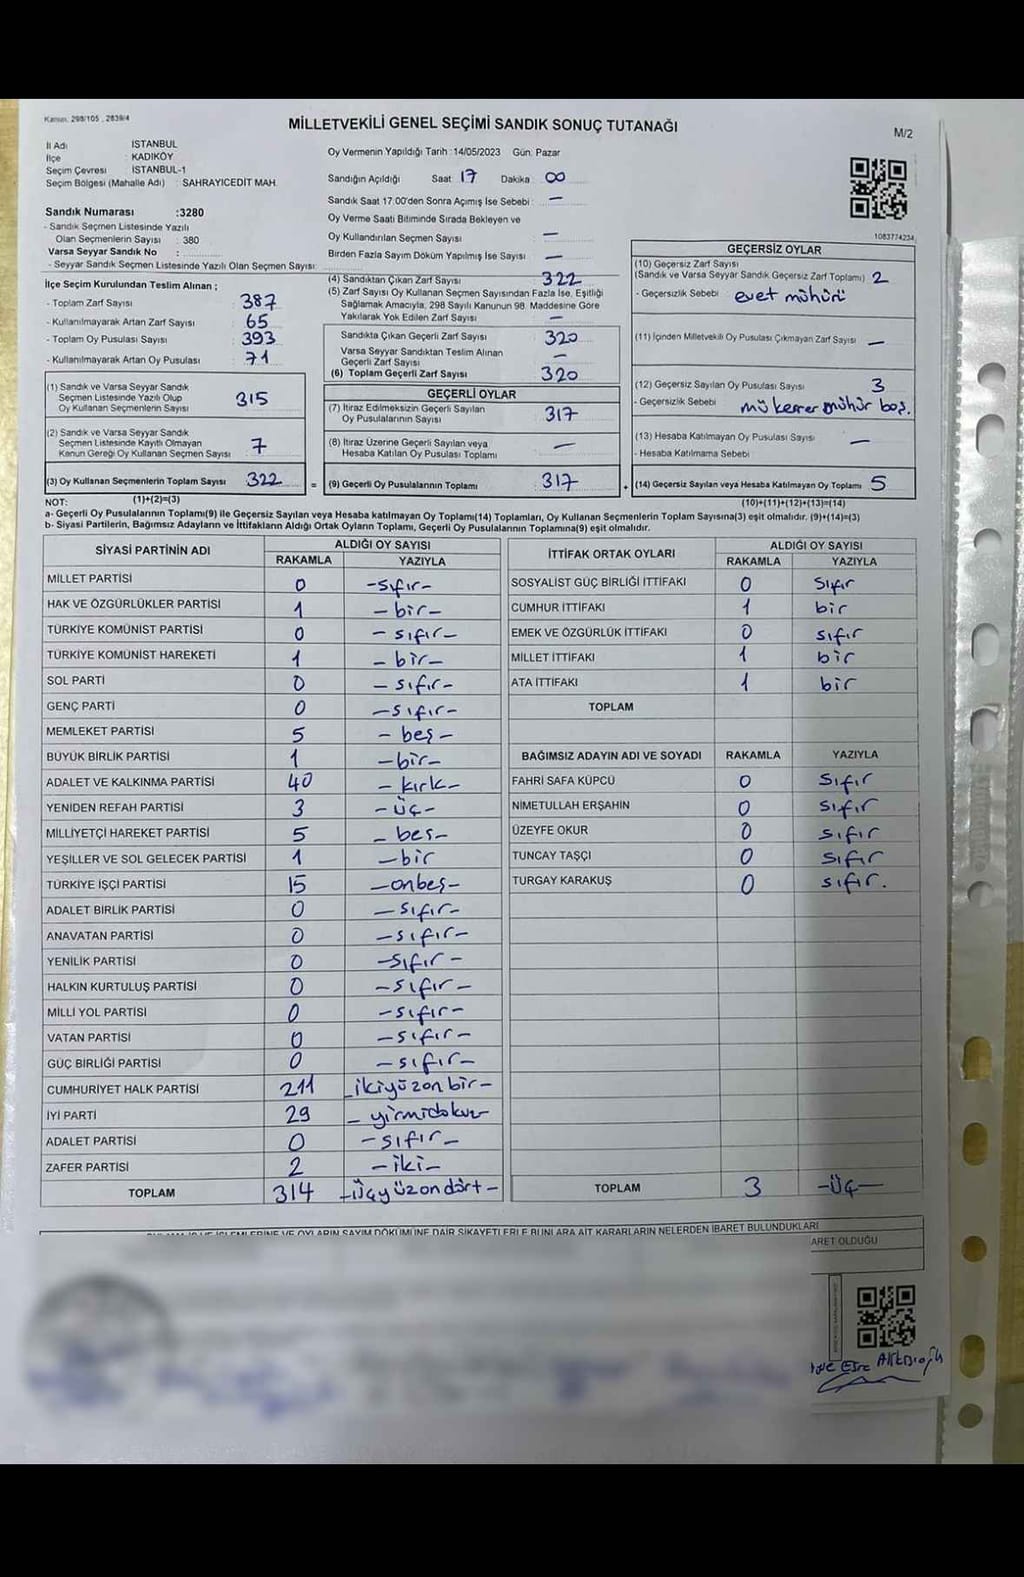 Kanun. 298/105 , 2839/4
MİLLETVEKİLİ GENEL SEÇİMİ SANDIK SONUÇ TUTANAĞI
M/2
İl Adı İSTANBUL
İlçe : KADIKÖY
Seçim Çevresi İSTANBUL-1
Seçim Bölgesi (Mahalle Adı) : SAHRAYICEDİT MAH.
Oy Vermenin Yapıldığı Tarih : 14/05/2023 Gün. Pazar
Sandığın Açıldığı Saat 17 Dakika 00
Sandık Saat 17.00'den Sonra Açımış İse Sebebi : —
Oy Verme Saati Bitiminde Sırada Bekleyen ve
Oy Kullandırılan Seçmen Sayısı —
Birden Fazla Sayım Döküm Yapılmış İse Sayısı —
1083774234
Sandık Numarası :3280
- Sandık Seçmen Listesinde Yazılı
Olan Seçmenlerin Sayısı : 380
Varsa Seyyar Sandık No :
- Seyyar Sandık Seçmen Listesinde Yazılı Olan Seçmen Sayısı:
İlçe Seçim Kurulundan Teslim Alınan ;
- Toplam Zarf Sayısı 387
- Kullanılmayarak Artan Zarf Sayısı 65
- Toplam Oy Pusulası Sayısı 393
- Kullanılmayarak Artan Oy Pusulası 71
(1) Sandık ve Varsa Seyyar Sandık
Seçmen Listesinde Yazılı Olup
Oy Kullanan Seçmenlerin Sayısı 315
(2) Sandık ve Varsa Seyyar Sandık
Seçmen Listesinde Kayıtlı Olmayan
Kanun Gereği Oy Kullanan Seçmen Sayısı 7
(3) Oy Kullanan Seçmenlerin Toplam Sayısı 322
(1)+(2)=(3)
(4) Sandıktan Çıkan Zarf Sayısı 322
(5) Zarf Sayısı Oy Kullanan Seçmen Sayısından Fazla İse, Eşitliği
Sağlamak Amacıyla, 298 Sayılı Kanunun 98. Maddesine Göre
Yakılarak Yok Edilen Zarf Sayısı —
Sandıkta Çıkan Geçerli Zarf Sayısı 320
Varsa Seyyar Sandıktan Teslim Alınan
Geçerli Zarf Sayısı —
(6) Toplam Geçerli Zarf Sayısı 320
GEÇERLİ OYLAR
(7) İtiraz Edilmeksizin Geçerli Sayılan
Oy Pusulalarının Sayısı 317
(8) İtiraz Üzerine Geçerli Sayılan veya
Hesaba Katılan Oy Pusulası Toplamı —
= (9) Geçerli Oy Pusulalarının Toplamı 317 +
GEÇERSİZ OYLAR
(10) Geçersiz Zarf Sayısı
(Sandık ve Varsa Seyyar Sandık Geçersiz Zarf Toplamı) 2
- Geçersizlik Sebebi evet mühürü
(11) İçinden Milletvekili Oy Pusulası Çıkmayan Zarf Sayısı —
(12) Geçersiz Sayılan Oy Pusulası Sayısı 3
- Geçersizlik Sebebi mükerrer mühür boş.
(13) Hesaba Katılmayan Oy Pusulası Sayısı —
- Hesaba Katılmama Sebebi
(14) Geçersiz Sayılan veya Hesaba Katılmayan Oy Toplamı 5
(10)+(11)+(12)+(13)=(14)
NOT:
a- Geçerli Oy Pusulalarının Toplamı(9) ile Geçersiz Sayılan veya Hesaba katılmayan Oy Toplamı(14) Toplamları, Oy Kullanan Seçmenlerin Toplam Sayısına(3) eşit olmalıdır. (9)+(14)=(3)
b- Siyasi Partilerin, Bağımsız Adayların ve İttifakların Aldığı Ortak Oyların Toplamı, Geçerli Oy Pusulalarının Toplamına(9) eşit olmalıdır.
SİYASİ PARTİNİN ADI ALDIĞI OY SAYISI
RAKAMLA YAZIYLA
MİLLET PARTİSİ 0 -sıfır-
HAK VE ÖZGÜRLÜKLER PARTİSİ 1 - bir-
TÜRKİYE KOMÜNİST PARTİSİ 0 - sıfır-
TÜRKİYE KOMÜNİST HAREKETİ 1 - bir-
SOL PARTİ 0 - sıfır-
GENÇ PARTİ 0 -sıfır-
MEMLEKET PARTİSİ 5 - beş-
BÜYÜK BİRLİK PARTİSİ 1 -bir-
ADALET VE KALKINMA PARTİSİ 40 - kırk-
YENİDEN REFAH PARTİSİ 3 -üç-
MİLLİYETÇİ HAREKET PARTİSİ 5 - beş-
YEŞİLLER VE SOL GELECEK PARTİSİ 1 -bir
TÜRKİYE İŞÇİ PARTİSİ 15 -onbeş-
ADALET BİRLİK PARTİSİ 0 -sıfır-
ANAVATAN PARTİSİ 0 -sıfır-
YENİLİK PARTİSİ 0 -sıfır-
HALKIN KURTULUŞ PARTİSİ 0 -sıfır-
MİLLİ YOL PARTİSİ 0 -sıfır-
VATAN PARTİSİ 0 -sıfır-
GÜÇ BİRLİĞİ PARTİSİ 0 -sıfır-
CUMHURİYET HALK PARTİSİ 211 -ikiyüzonbir-
İYİ PARTİ 29 - yirmidokuz
ADALET PARTİSİ 0 -sıfır-
ZAFER PARTİSİ 2 -iki-
TOPLAM 314 -üçyüzondört-
İTTİFAK ORTAK OYLARI ALDIĞI OY SAYISI
RAKAMLA YAZIYLA
SOSYALİST GÜÇ BİRLİĞİ İTTİFAKI 0 sıfır
CUMHUR İTTİFAKI 1 bir
EMEK VE ÖZGÜRLÜK İTTİFAKI 0 sıfır
MİLLET İTTİFAKI 1 bir
ATA İTTİFAKI 1 bir
TOPLAM
BAĞIMSIZ ADAYIN ADI VE SOYADI RAKAMLA YAZIYLA
FAHRİ SAFA KÜPCÜ 0 sıfır
NİMETULLAH ERŞAHİN 0 sıfır
ÜZEYFE OKUR 0 sıfır
TUNCAY TAŞÇI 0 sıfır
TURGAY KARAKUŞ 0 sıfır.
TOPLAM 3 -üç-
OYLARIN SAYIM DÖKÜMÜNE DAİR ŞİKAYETLERLE BUNLARA AİT KARARLARIN NELERDEN İBARET BULUNDUKLARI
ARET OLDUĞU